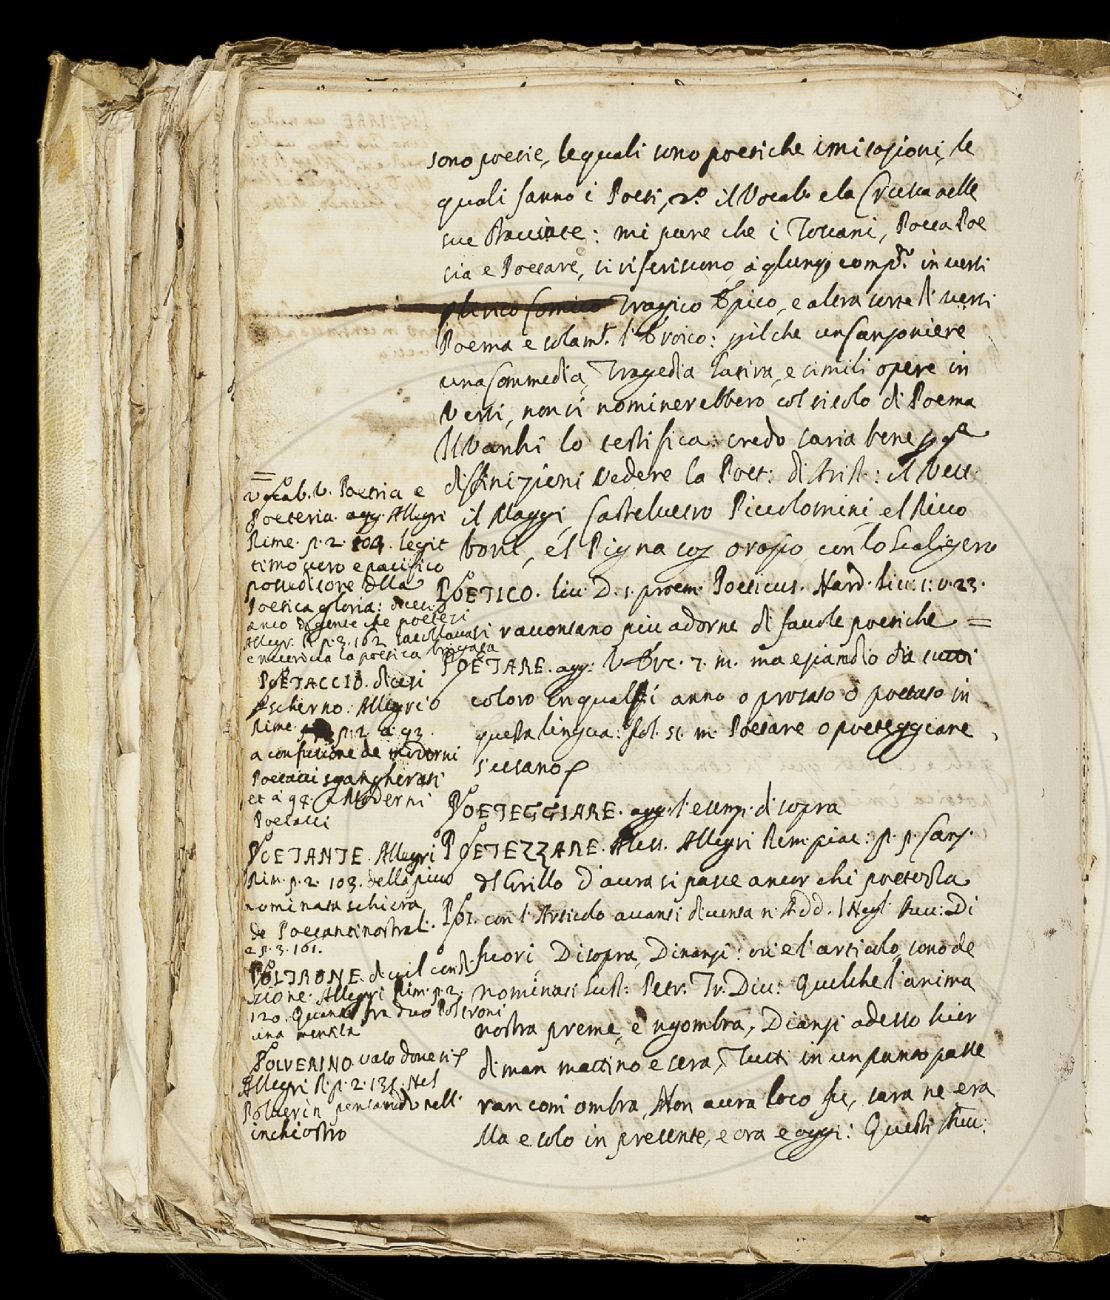 sono poesie, le quali sono poetiche imitazioni, le
quali fanno i Poeti, il Vocab e la Crusca nelle
sue : mi pare che i Toscani, Poeta Poe
sia e Poetare, si riferiscono a comp.re in versi
Comico Tragico Epico, e altra sorte di versi
Poema e solam.te l'Eroico: che un Canzoniere
una Commedia, Tragedia Satira, e simili opere in
versi, non si nominerebbero col titolo di Poema
Il Varchi lo testifica: credo saria bene
vedere la Poet: di Arist: il Vett:
il Maggi, Castelvetro Piccolomini el Ricco
boni, el Pigna con lo Scaligero
POETICO. liv: D. 1. proem. Poeticus. Nard. liv: 1: v. 23.
si raccontano piu adorne di favole poetiche =
POETARE. agg: V. Erc. 7. m. ma eziandio da tutti
coloro anno o prosato o poetato in
questa lingua: fol. 51. m. Poetare o poeteggiare
s'usano
POETEGGIARE. agg. l'esemp. di sopra
POETEZZARE. Aless. Allegri Rim. piac: p. p. Canz.
del Grillo D'aura si pasce ancor chi
con l'Articolo avanti diventa n: Add.
fuori Di sopra, Dinanzi: l'articolo, sono de
nominati Sust: Petr. Tr. Div: Quelche l'anima
nostra preme, e ngombra, Dianzi adesso hier
diman mattino e sera, Tutti in un punto passe
ran com ombra, Non avra loco fu, sara ne era
Ma e solo in presente, e ora e oggi: Questi
=
Vocab. V. Poetria e
Poeteria. agg. Allegri
Rime. p. 2. 104. legit
timo vero e pacifico
posseditore della
Poetica gloria: dicesi
anco di gente che poetezi
Allegr. R. p. 3. 162.
e la poetica brigata
POETACCIO. dicesi
p scherno. Allegri
Rime. p. 2. a 93.
a confusione de moderni
Poetacci sgangherati
et a 98. Moderni
Poetacci
POETANTE. Allegri
Rim. p. 2. 103. della piu
nominata schiera
de Poetanti nostrali.
e p. 3. 161.
POLTRONE. di vil cond.
zione. Allegri Rim. p. 2.
120. Quando fra duo Poltroni
una mentita
POLVERINO. vaso dove si
Allegri R. p. 2. 131. Nel
Polverin pensando nell'
inchiostro